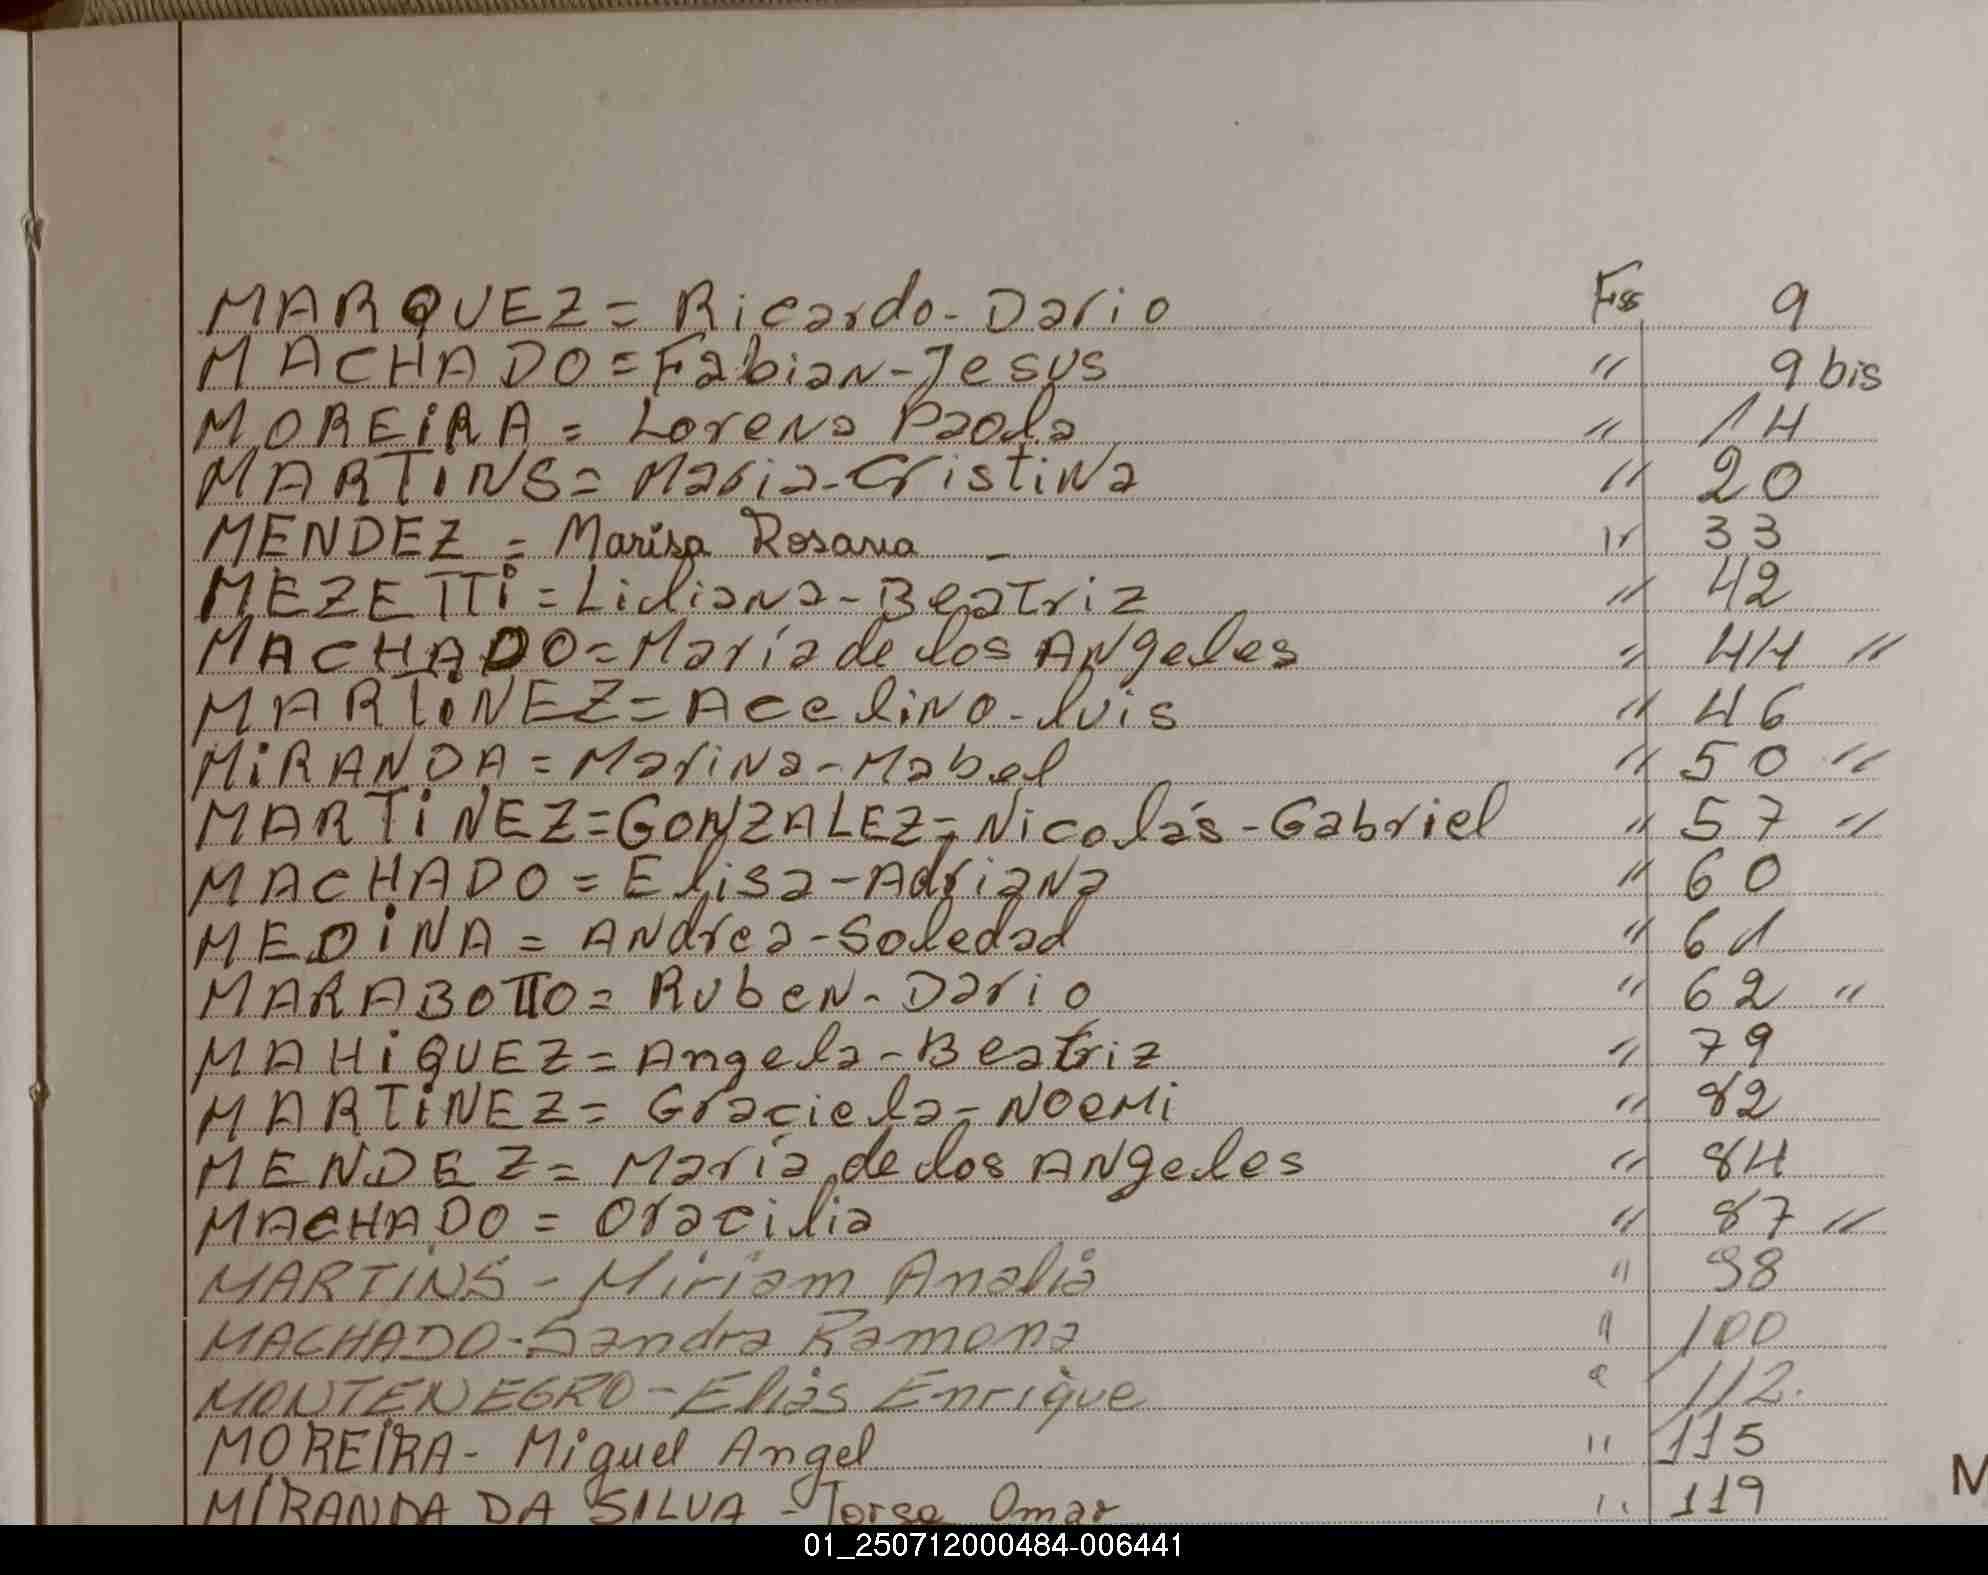 MARQUEZ = Ricardo - Dario Fss 9
MACHADO = Fabian - Jesus " 9 bis
MOREiRA = Lorena Paola " 14
MARTiNS = Maria - Cristina " 20
MENDEZ = Marisa Rosana - " 33
MEZETTi = Liliana - Beatriz " 42
MACHADO = María de los Angeles " 44 "
MARTiNEZ = Acelino - luis " 46
MiRANDA = Marina - Mabel " 50 "
MARTiNEZ = GONZALEZ = Nicolás - Gabriel " 57 "
MACHADO = Elisa - Adriana " 60
MEDiNA = Andrea - Soledad " 61
MARABOTTO = Ruben - Dario " 62 "
MAHiQUEZ = Angela - Beatriz " 79
MARTiNEZ = Graciela - Noemi " 82
MENDEZ = María de los Angeles " 84
MACHADO = Oracilia " 87 "
MARTINS - Miriam Analia " 98
MACHADO - Sandra Ramona " 100
MONTENEGRO - Elias Enrique " 112.
MOREIRA - Miguel Angel " 115
MIRANDA DA SILVA - Jorge Omar " 119
M
01_250712000484-006441